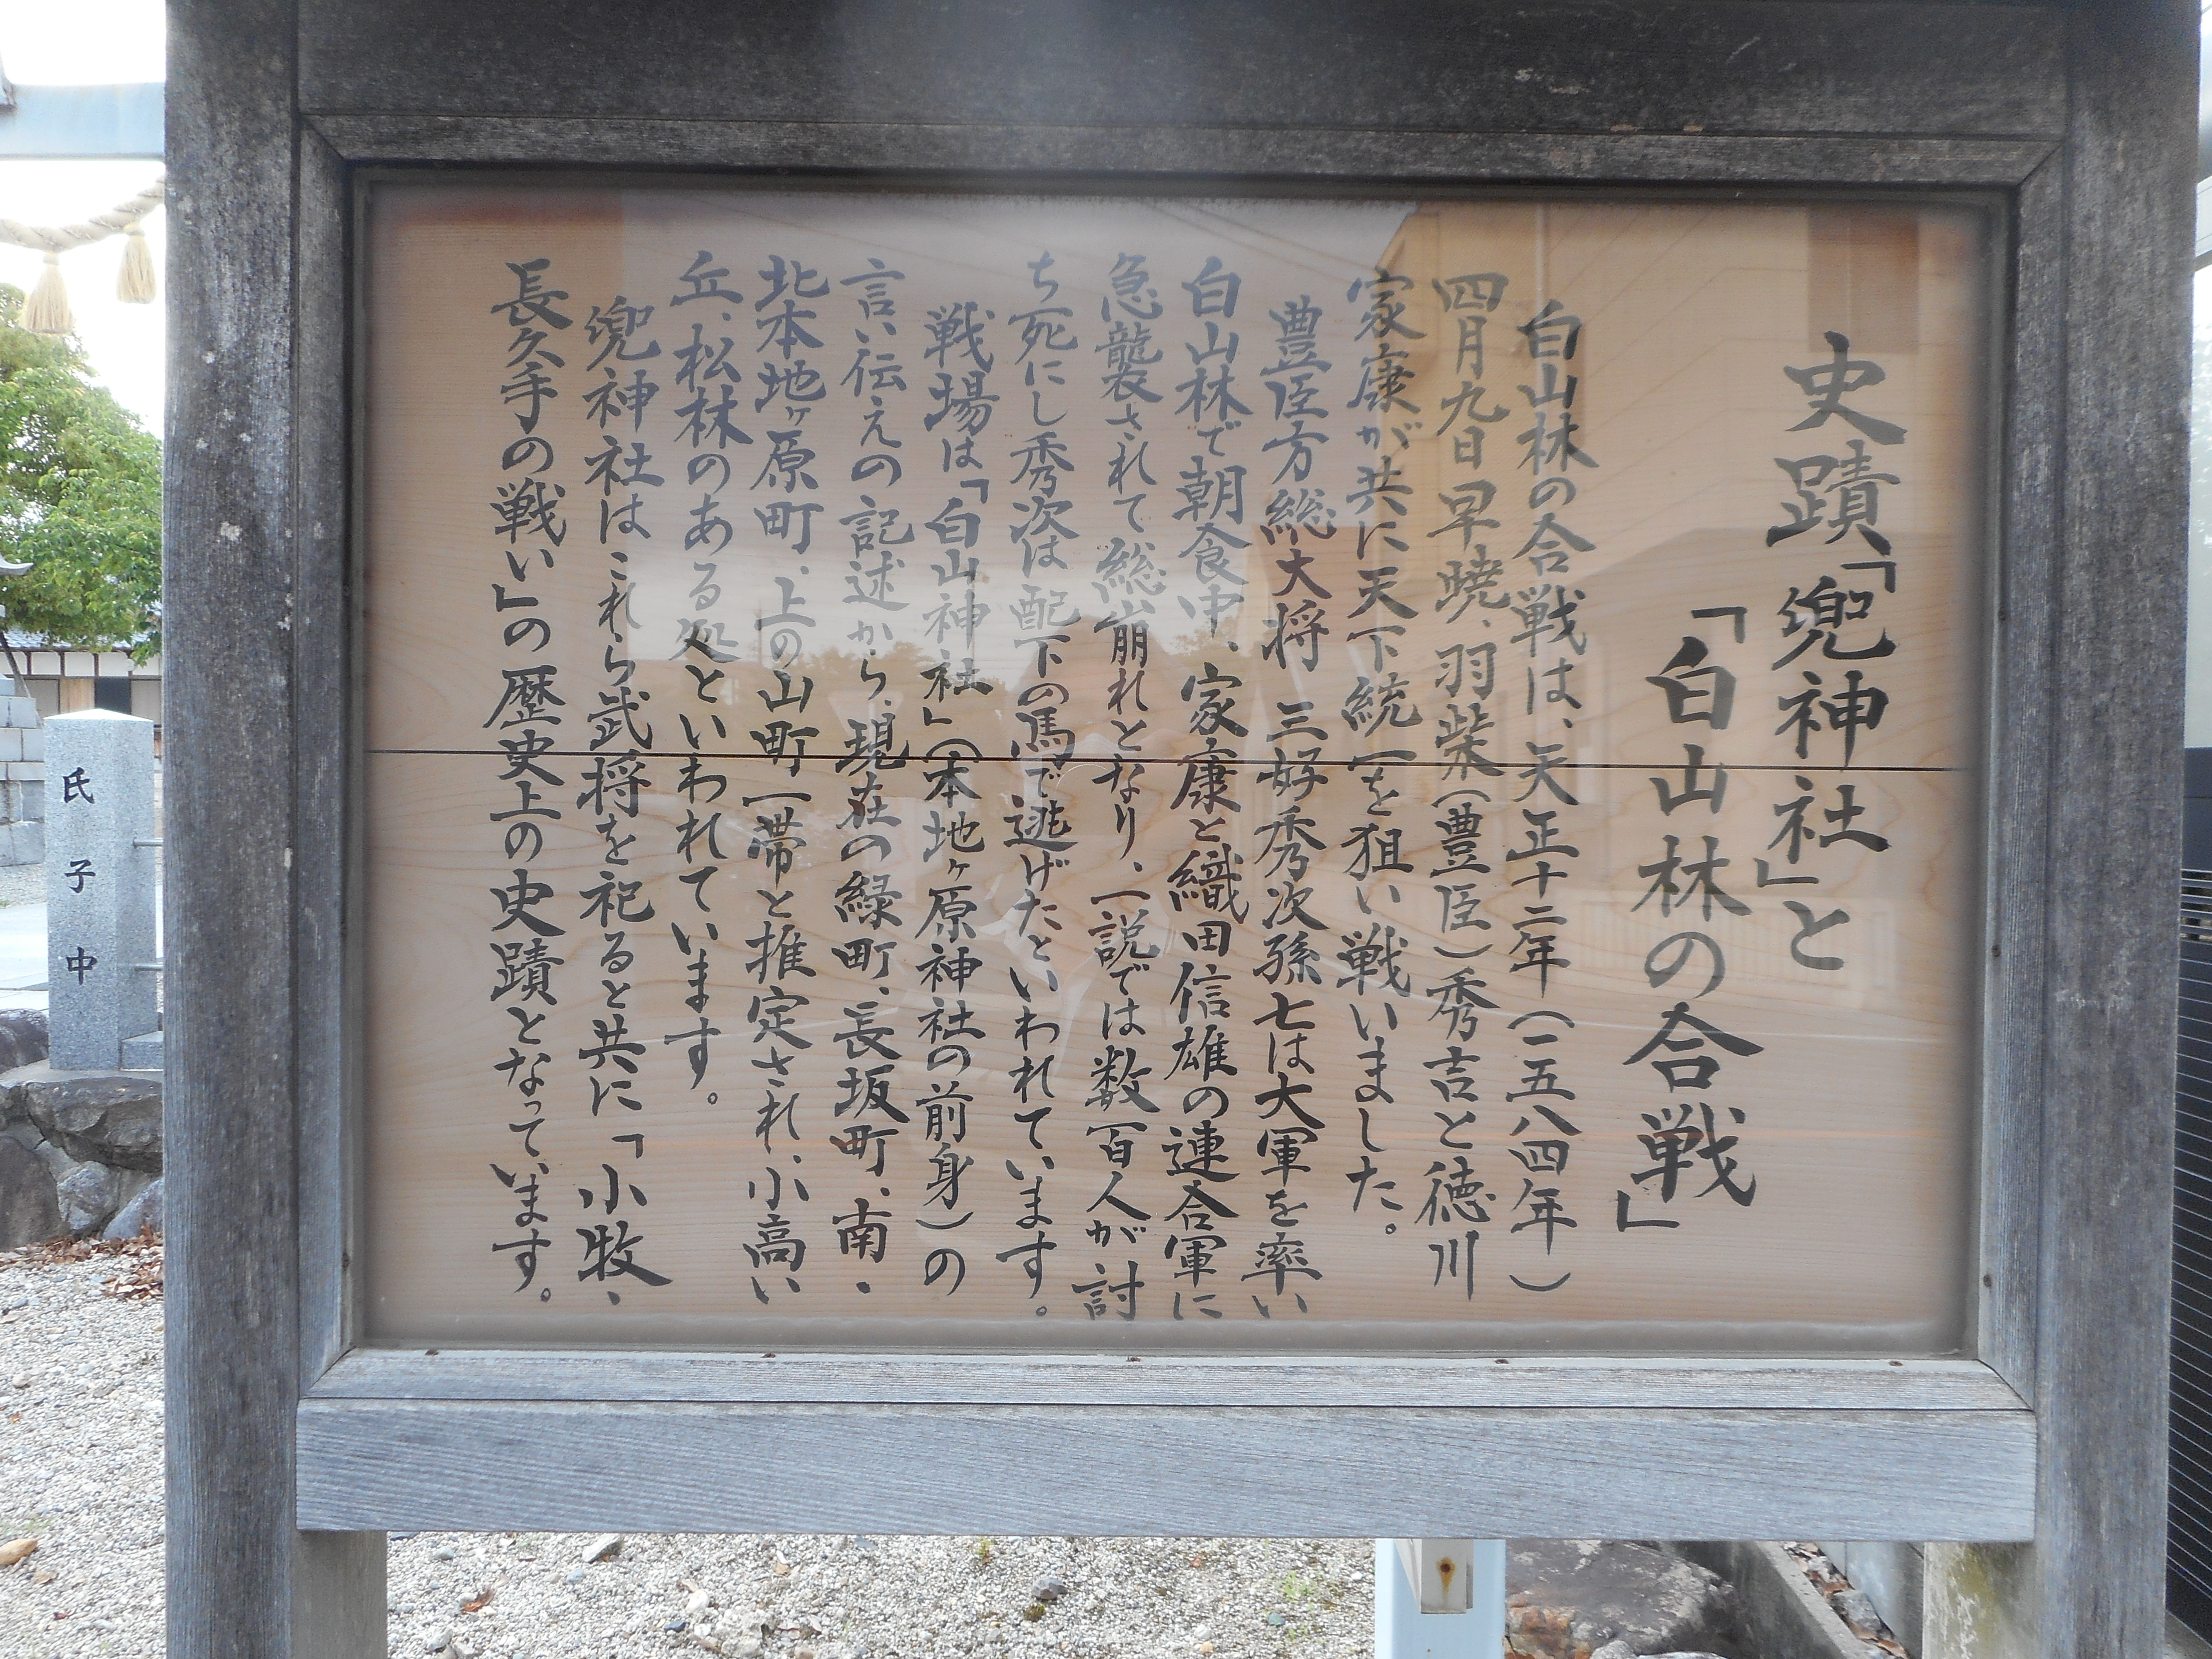 史蹟「兜神社」と
「白山林の合戦」
白山林の合戦は、天正十二年(一五八四年)
四月九日早暁、羽柴(豊臣)秀吉と徳川
家康が共に天下統一を狙い戦いました。
豊臣方総大将 三好秀次孫七は大軍を率い
白山林で朝食中、家康と織田信雄の連合軍に
急襲されて総崩れとなり、一説では数百人が討
ち死にし秀次は配下の馬で逃げたといわれています。
戦場は「白山神社」(本地ヶ原神社の前身)の
言い伝えの記述から、現在の緑町、長坂町、南・
北本地ヶ原町、上の山町一帯と推定され、小高い
丘、松林のある処といわれています。
兜神社はこれら武将を祀ると共に「小牧・
長久手の戦い」の歴史上の史蹟となっています。
氏子中